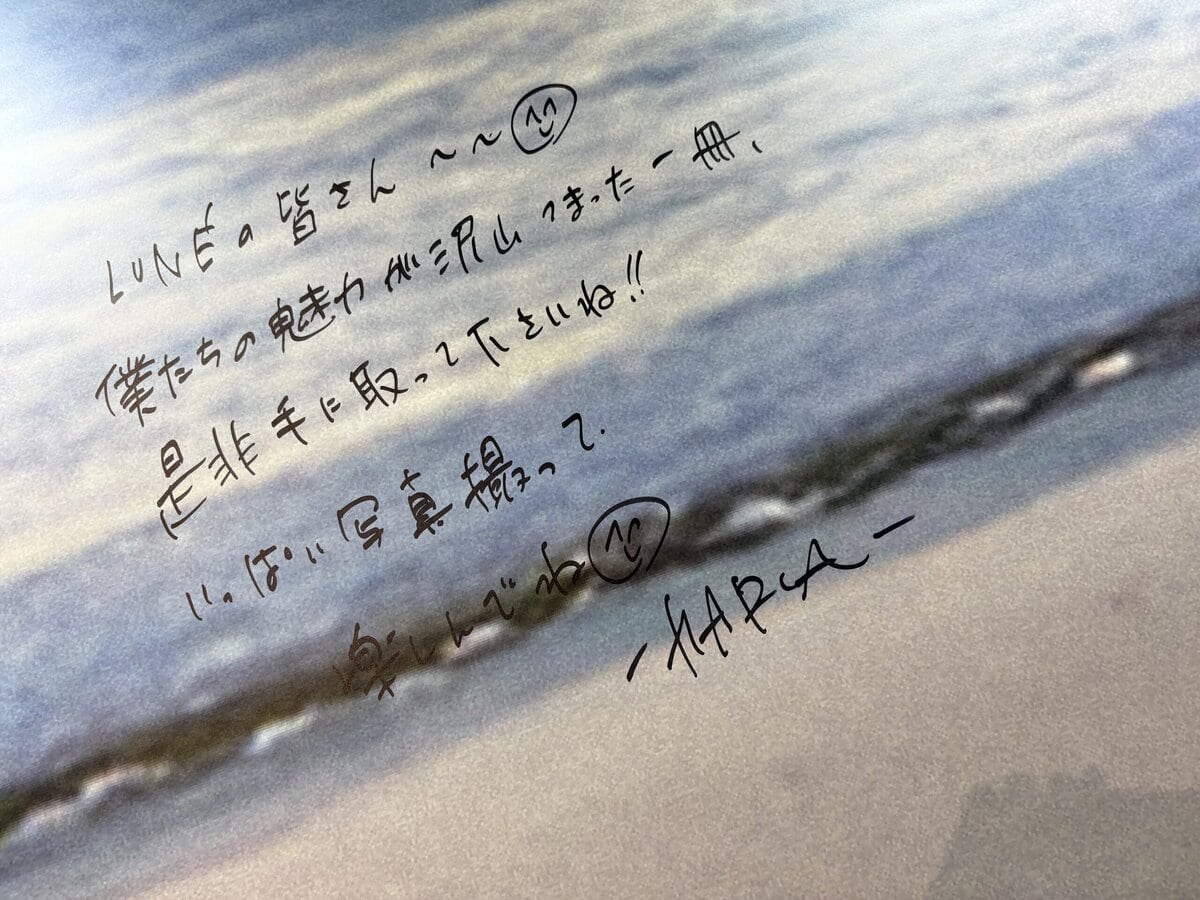 LUNÉの皆さん〜〜
僕たちの魅力が沢山つまった一冊、
是非手に取って下さいね!!
いっぱい写真撮って、
楽しんでね
-HARUA-